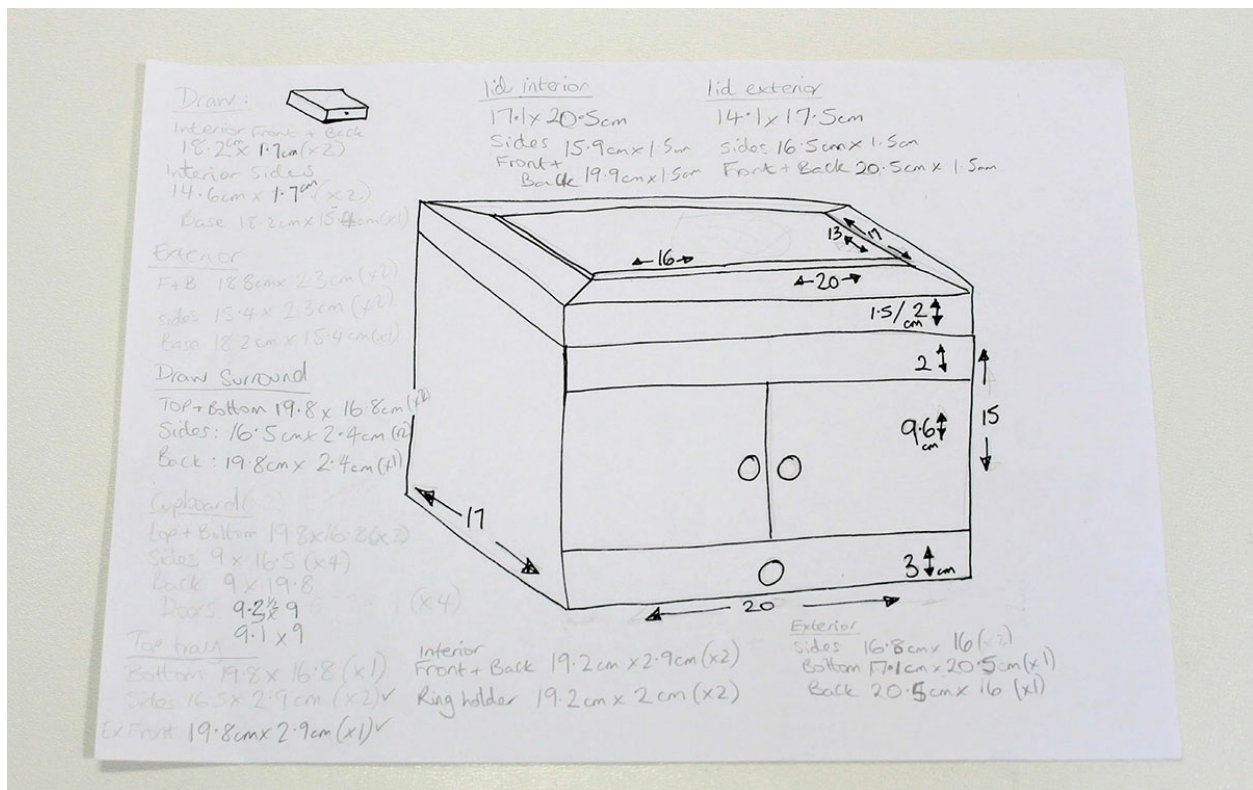 Draw:
Interior Front + Back
18.2cm x 1.7cm (x2)
Interior Sides
14.6cm x 1.7cm (x2)
Base 18.2cm x 15.4cm (x1)
Exterior
F+B 18.8cm x 2.3cm (x2)
sides 15.4 x 2.3cm (x2)
Base 18.2cm x 15.4cm (x1)
Draw Surround
Top + Bottom 19.8 x 16.8cm (x2)
Sides: 16.5cm x 2.4cm (x2)
Back: 19.8cm x 2.4cm (x1)
Cupboard
top + Bottom 19.8 x 16.8 (x2)
Sides 9 x 16.5 (x4)
Back 9 x 19.8
Doors 9.2 x 9 (x4)
9.1 x 9
Top tray
Bottom 19.8 x 16.8 (x1)
Sides 16.5 x 2.9cm (x2) ✓
Ex Front 19.8cm x 2.9cm (x1) ✓
lid interior
17.1 x 20.5cm
Sides 15.9cm x 1.5cm
Front +
Back 19.9cm x 1.5cm
lid exterior
14.1 x 17.5cm
Sides 16.5cm x 1.5cm
Front + Back 20.5cm x 1.5cm
16
13
17
20
1.5/2
cm
2
15
9.6
cm
17
3 cm
20
Interior
Front + Back 19.2cm x 2.9cm (x2)
Ring holder 19.2cm x 2cm (x2)
Exterior
sides 16.8cm x 16 (x2)
Bottom 17.1cm x 20.5cm (x1)
Back 20.5cm x 16 (x1)